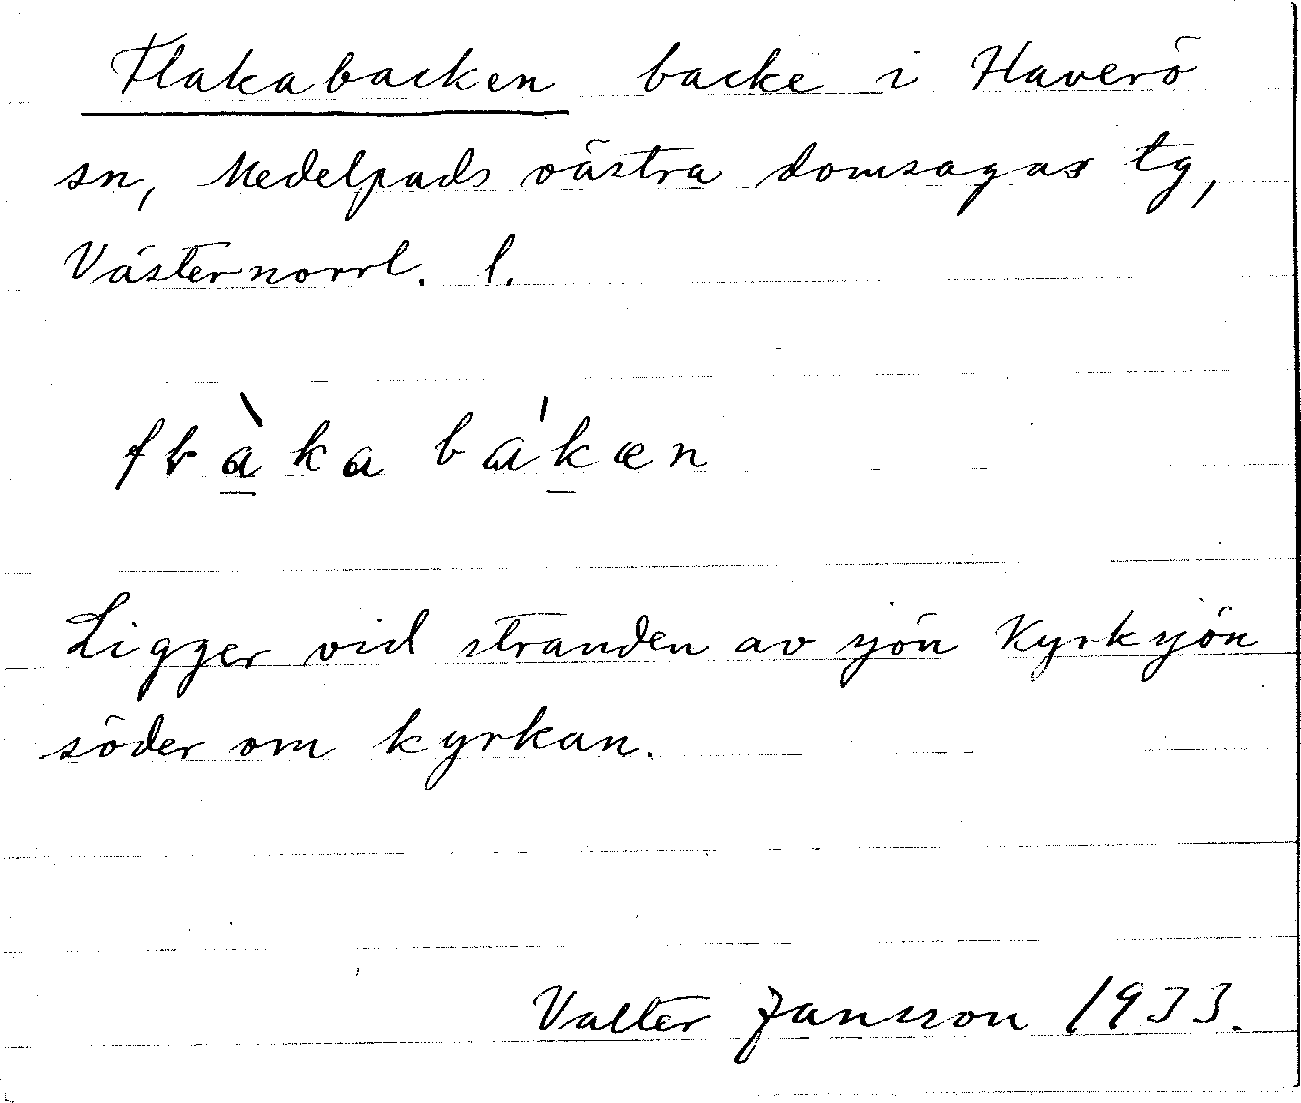 Flakabacken backe i Haverö
sn, Medelpads västra domsagas tg,
Västernorrl. l.
Ligger vid stranden av sjön Kyrksjön
söder om kyrkan.
Valter Jansson 1933.